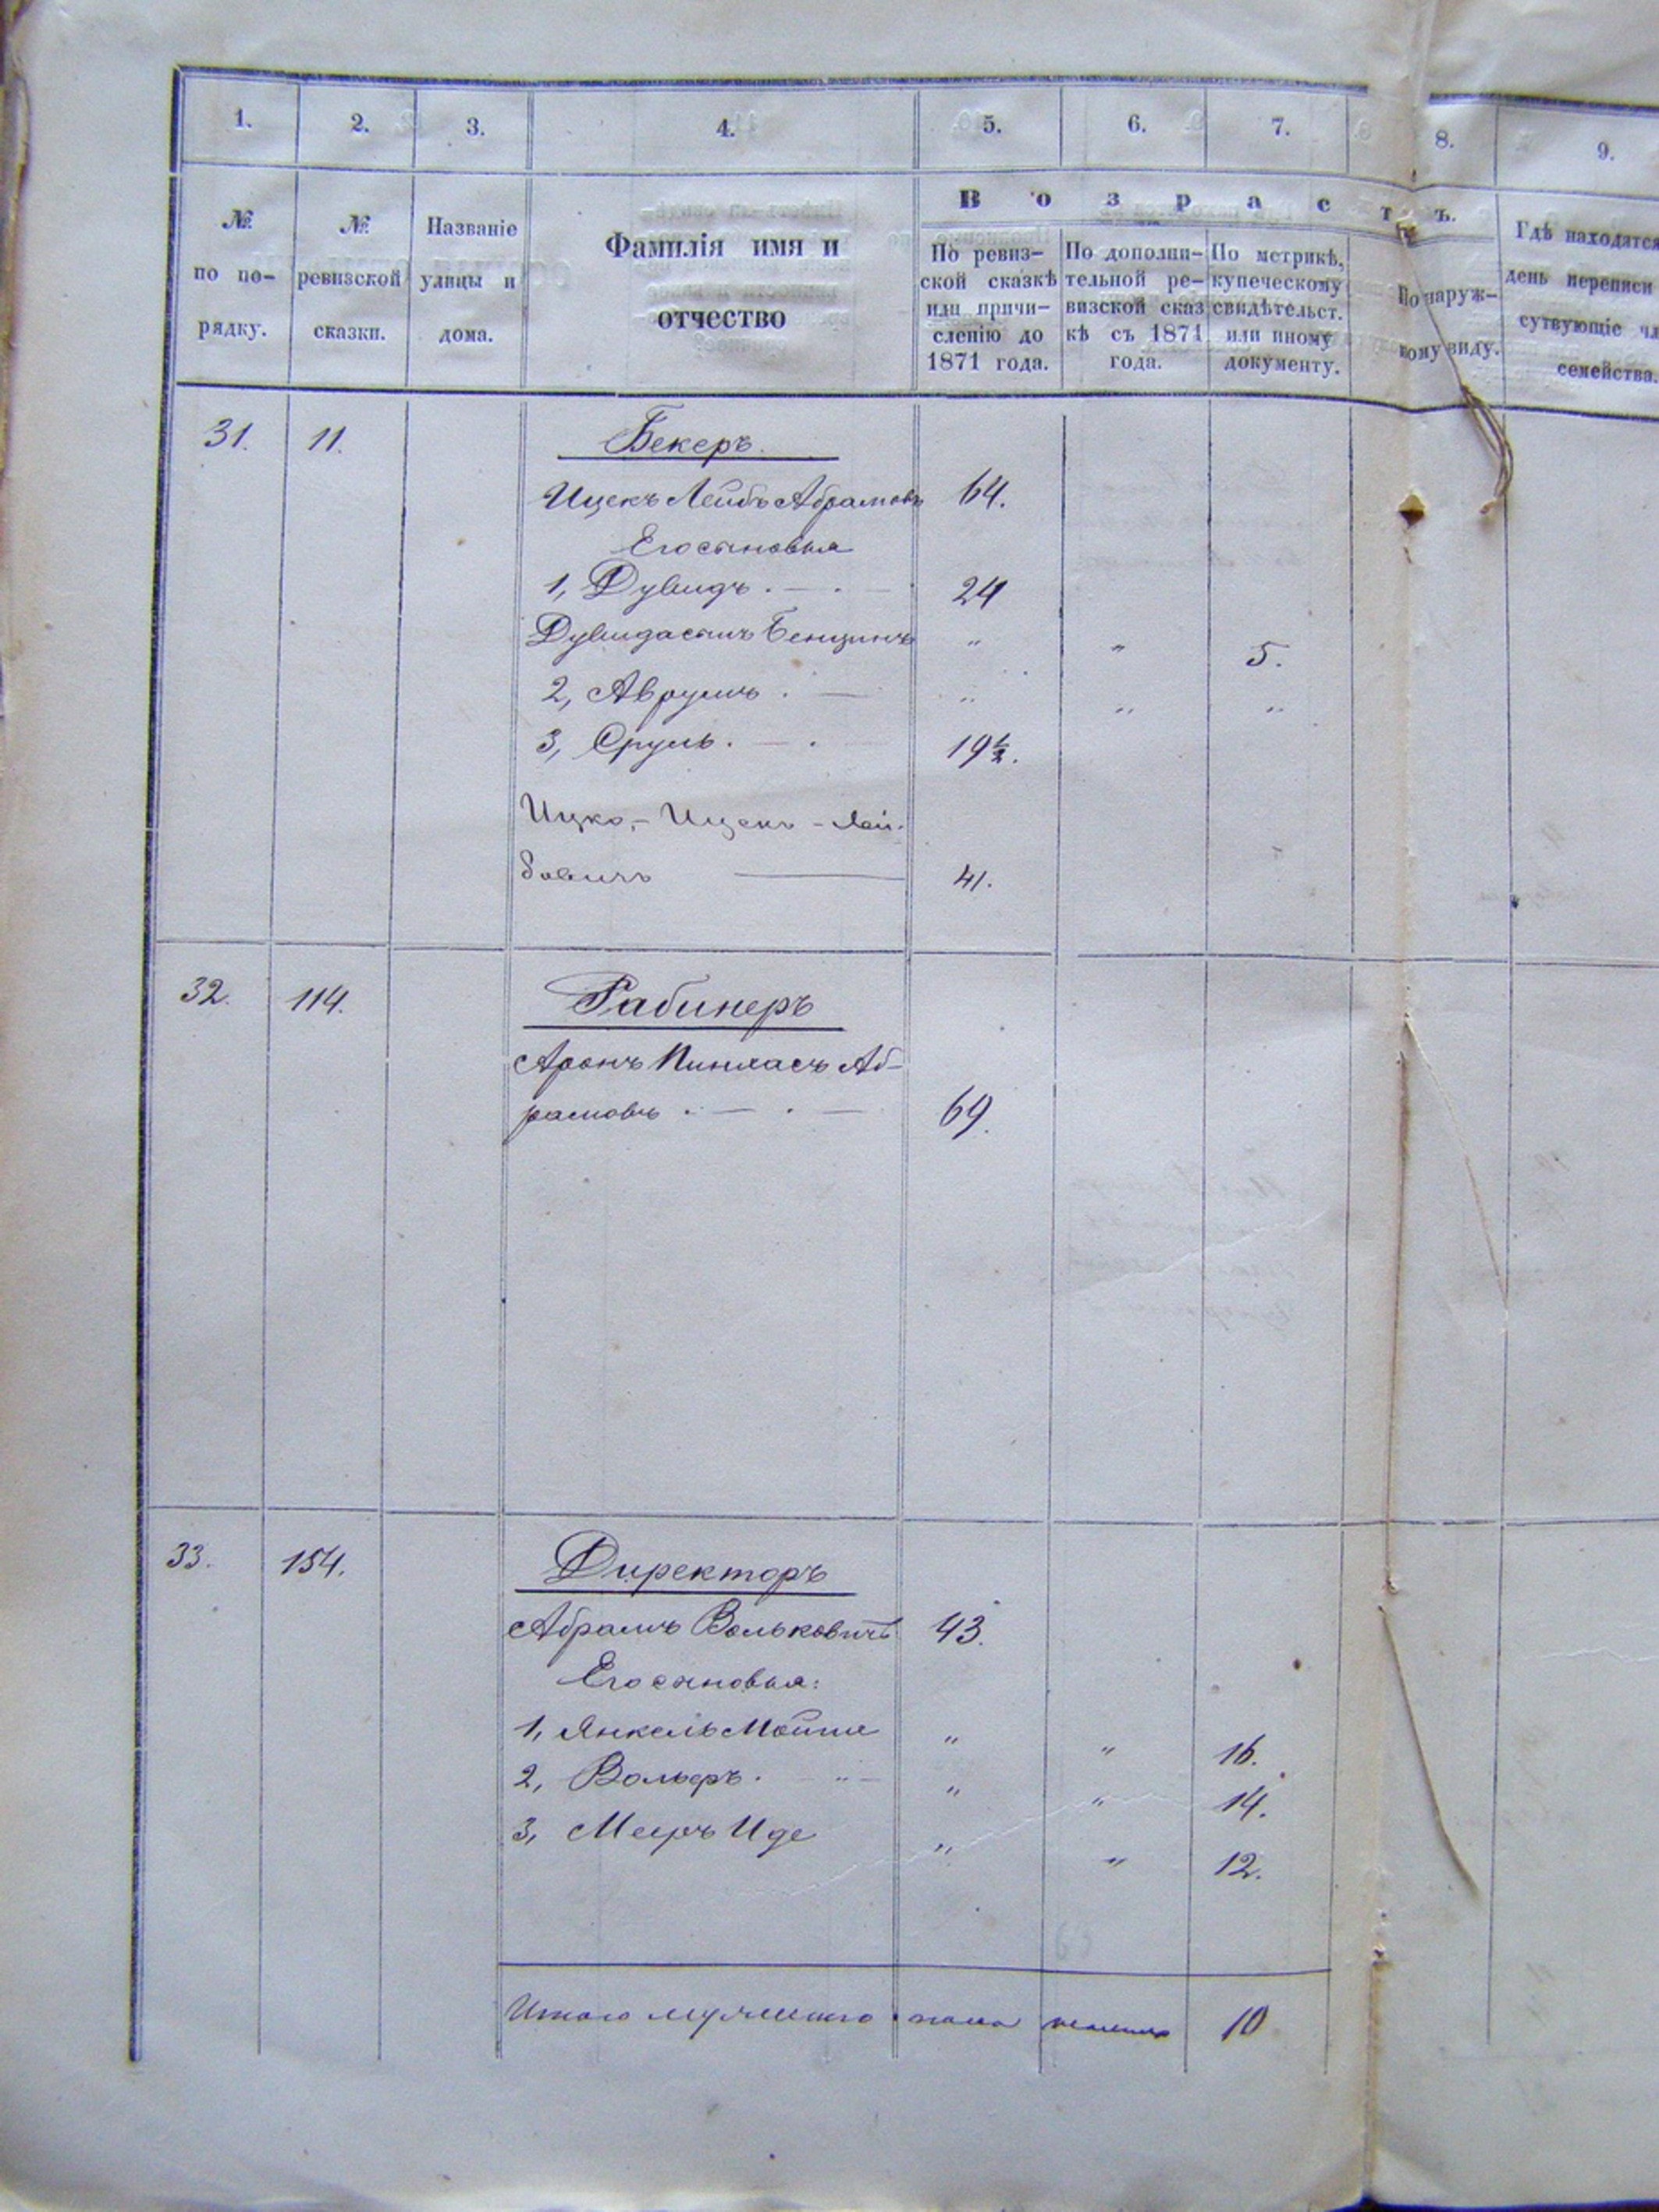 1. 2. 3. 4. 5. 6. 7. 8. 9.
№ по по-рядку.
№ ревизской сказки.
Названіе улицы и дома.
Фамилія имя и отчество
Возрастъ.
По ревиз-
ской сказкѣ
или причи-
сленію до
1871 года.
По дополни-
тельной ре-
визской сказ
кѣ съ 1871
года.
По метрикѣ,
купеческому
свидѣтельст.
или иному
документу.
По наруж-
ному виду.
Гдѣ находятся
день переписи
сутвующіе чл
семейства.
31. 11. Бекеръ.
Ицекъ Лейбъ Абрамовъ 64.
Его сыновья
1, Дувидъ . — . — 24
Дувида сынъ Бенцинъ " " 5.
2, Аврумъ . — " " "
3, Сруль . — . — 19½.
Ицко, - Ицекъ - Лей-
бовичъ — 41.
32. 114. Рабинеръ
Аронъ Пинхасъ Аб-
рамовъ . — . — 69.
33. 154. Директоръ
Абрамъ Вольковичъ 43.
Его сыновья:
1, Янкель Мойше " " 16.
2, Вольфъ . " — " " 14.
3, Мееръ Иде " " 12.
Итого мужескаго пола 10